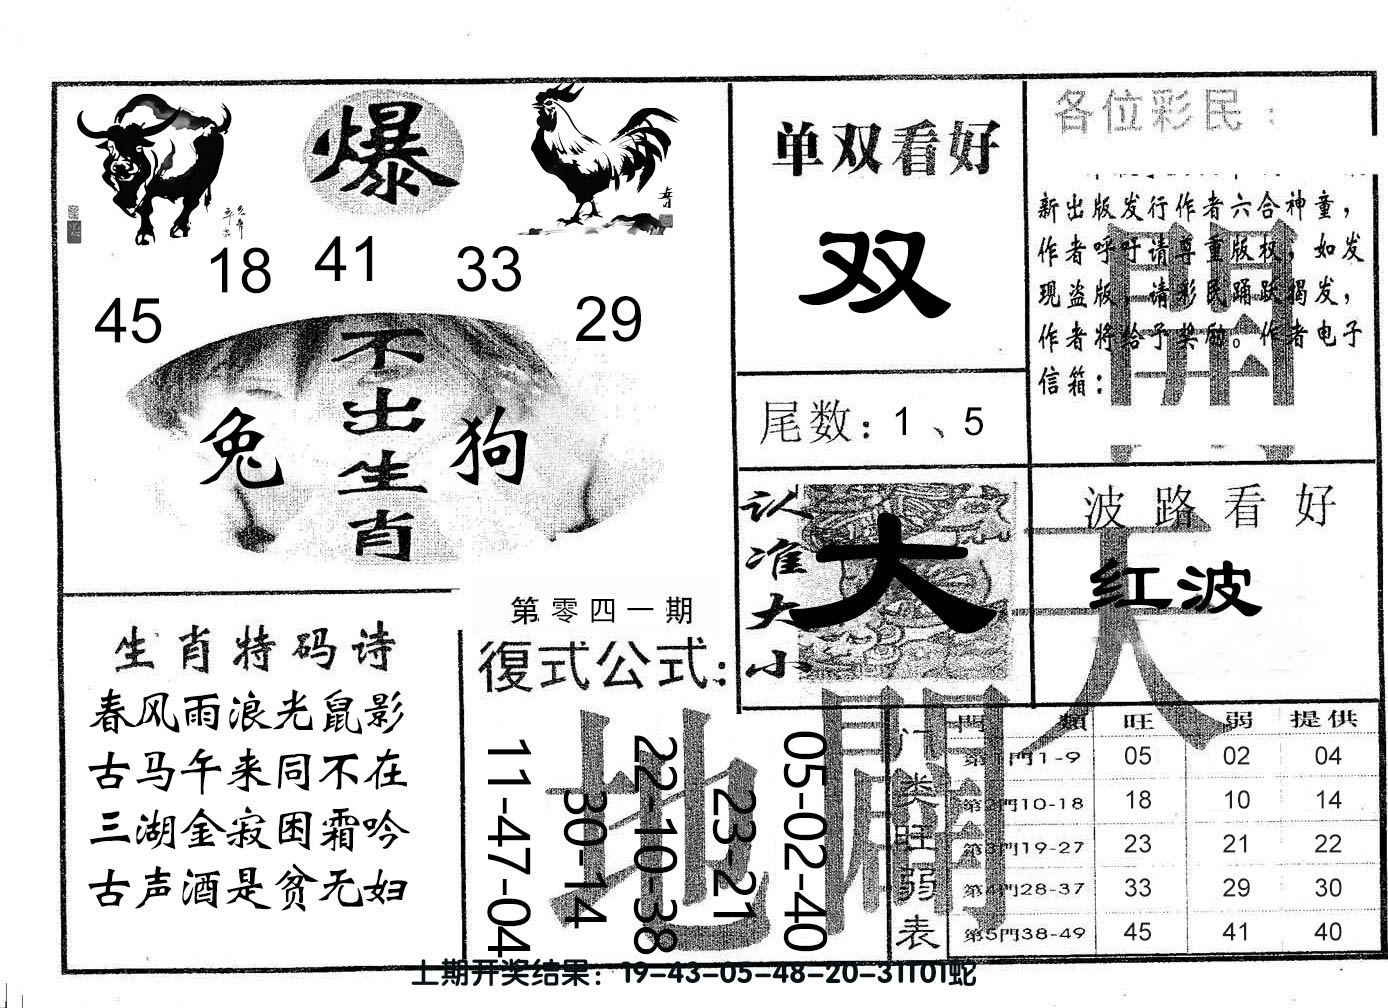 爆
18 41 33
45 29
不出生肖
兔 狗
单双看好
双
尾数：1、5
认准大小
大
各位彩民：
新出版发行作者六合神童，
作者呼吁请尊重版权，如发
现盗版，请彩民踊跃揭发，
作者将给予奖励。作者电子
信箱：
開
波路看好
红波
天
生肖特码诗
春风雨浪光鼠影
古马午来同不在
三湖金寂困霜吟
古声酒是贫无妇
第零四一期
復式公式：
11-47-04
30-14
22-10-38
23-21
05-02-40
地
門类旺弱表
門類 旺 弱 提供
第1門1-9 05 02 04
第2門10-18 18 10 14
第3門19-27 23 21 22
第4門28-37 33 29 30
第5門38-49 45 41 40
上期开奖结果：19-43-05-48-20-31T01蛇